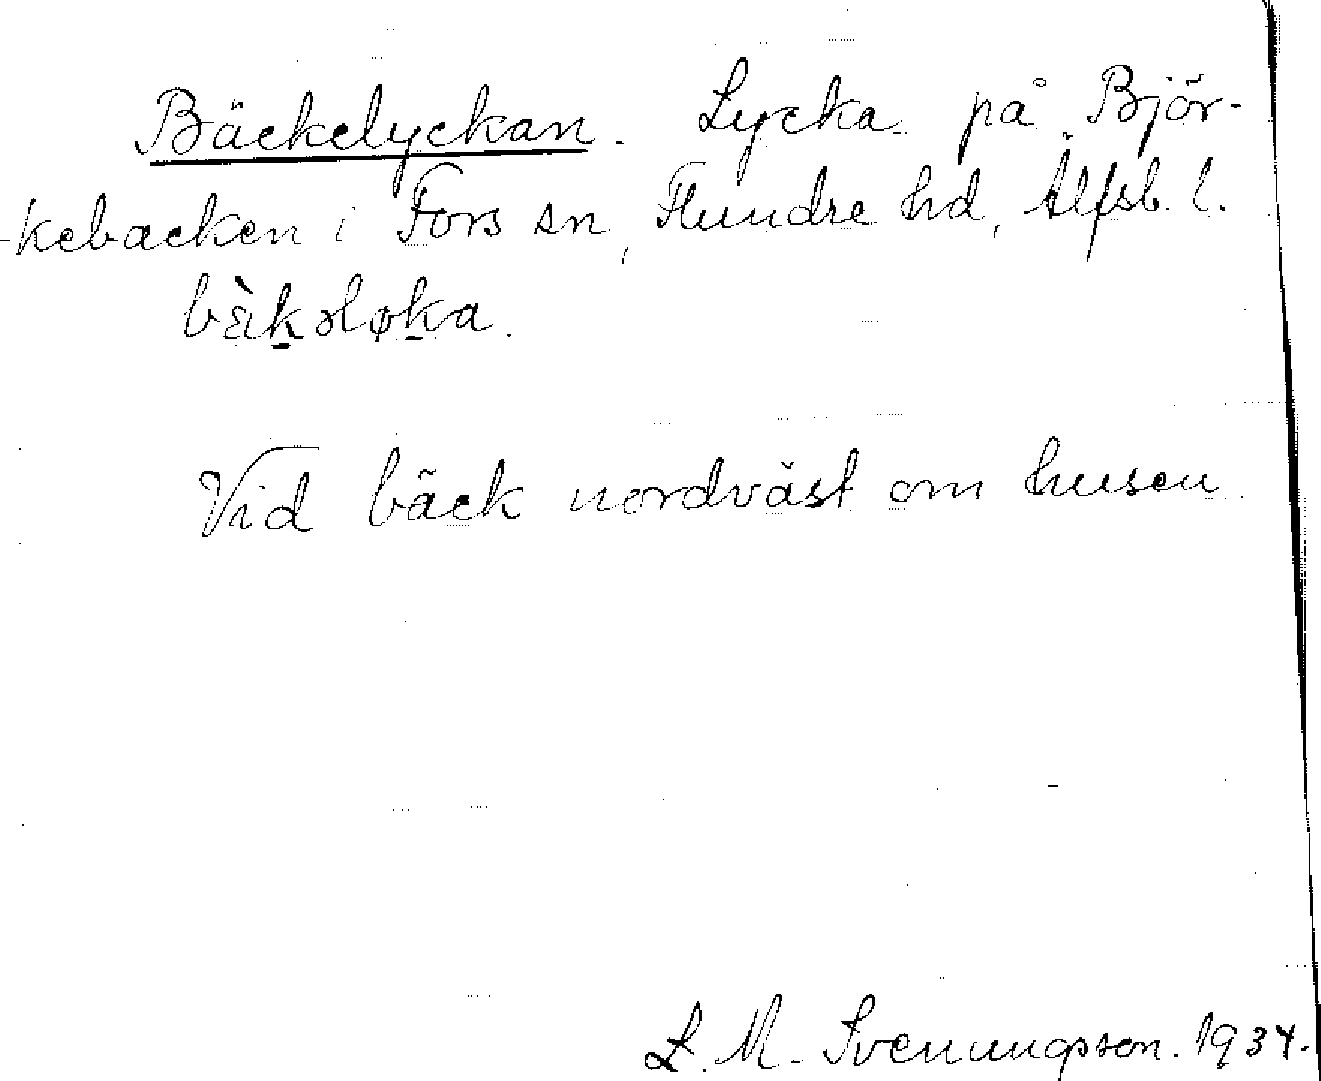 Bäckelyckan. Lycka på Björ-
kebacken i Fors sn, Flundre hd, Älfsb. l.
bὲkəløka.
Vid bäck nordväst om husen.
L. M. Svenungsson. 1934.